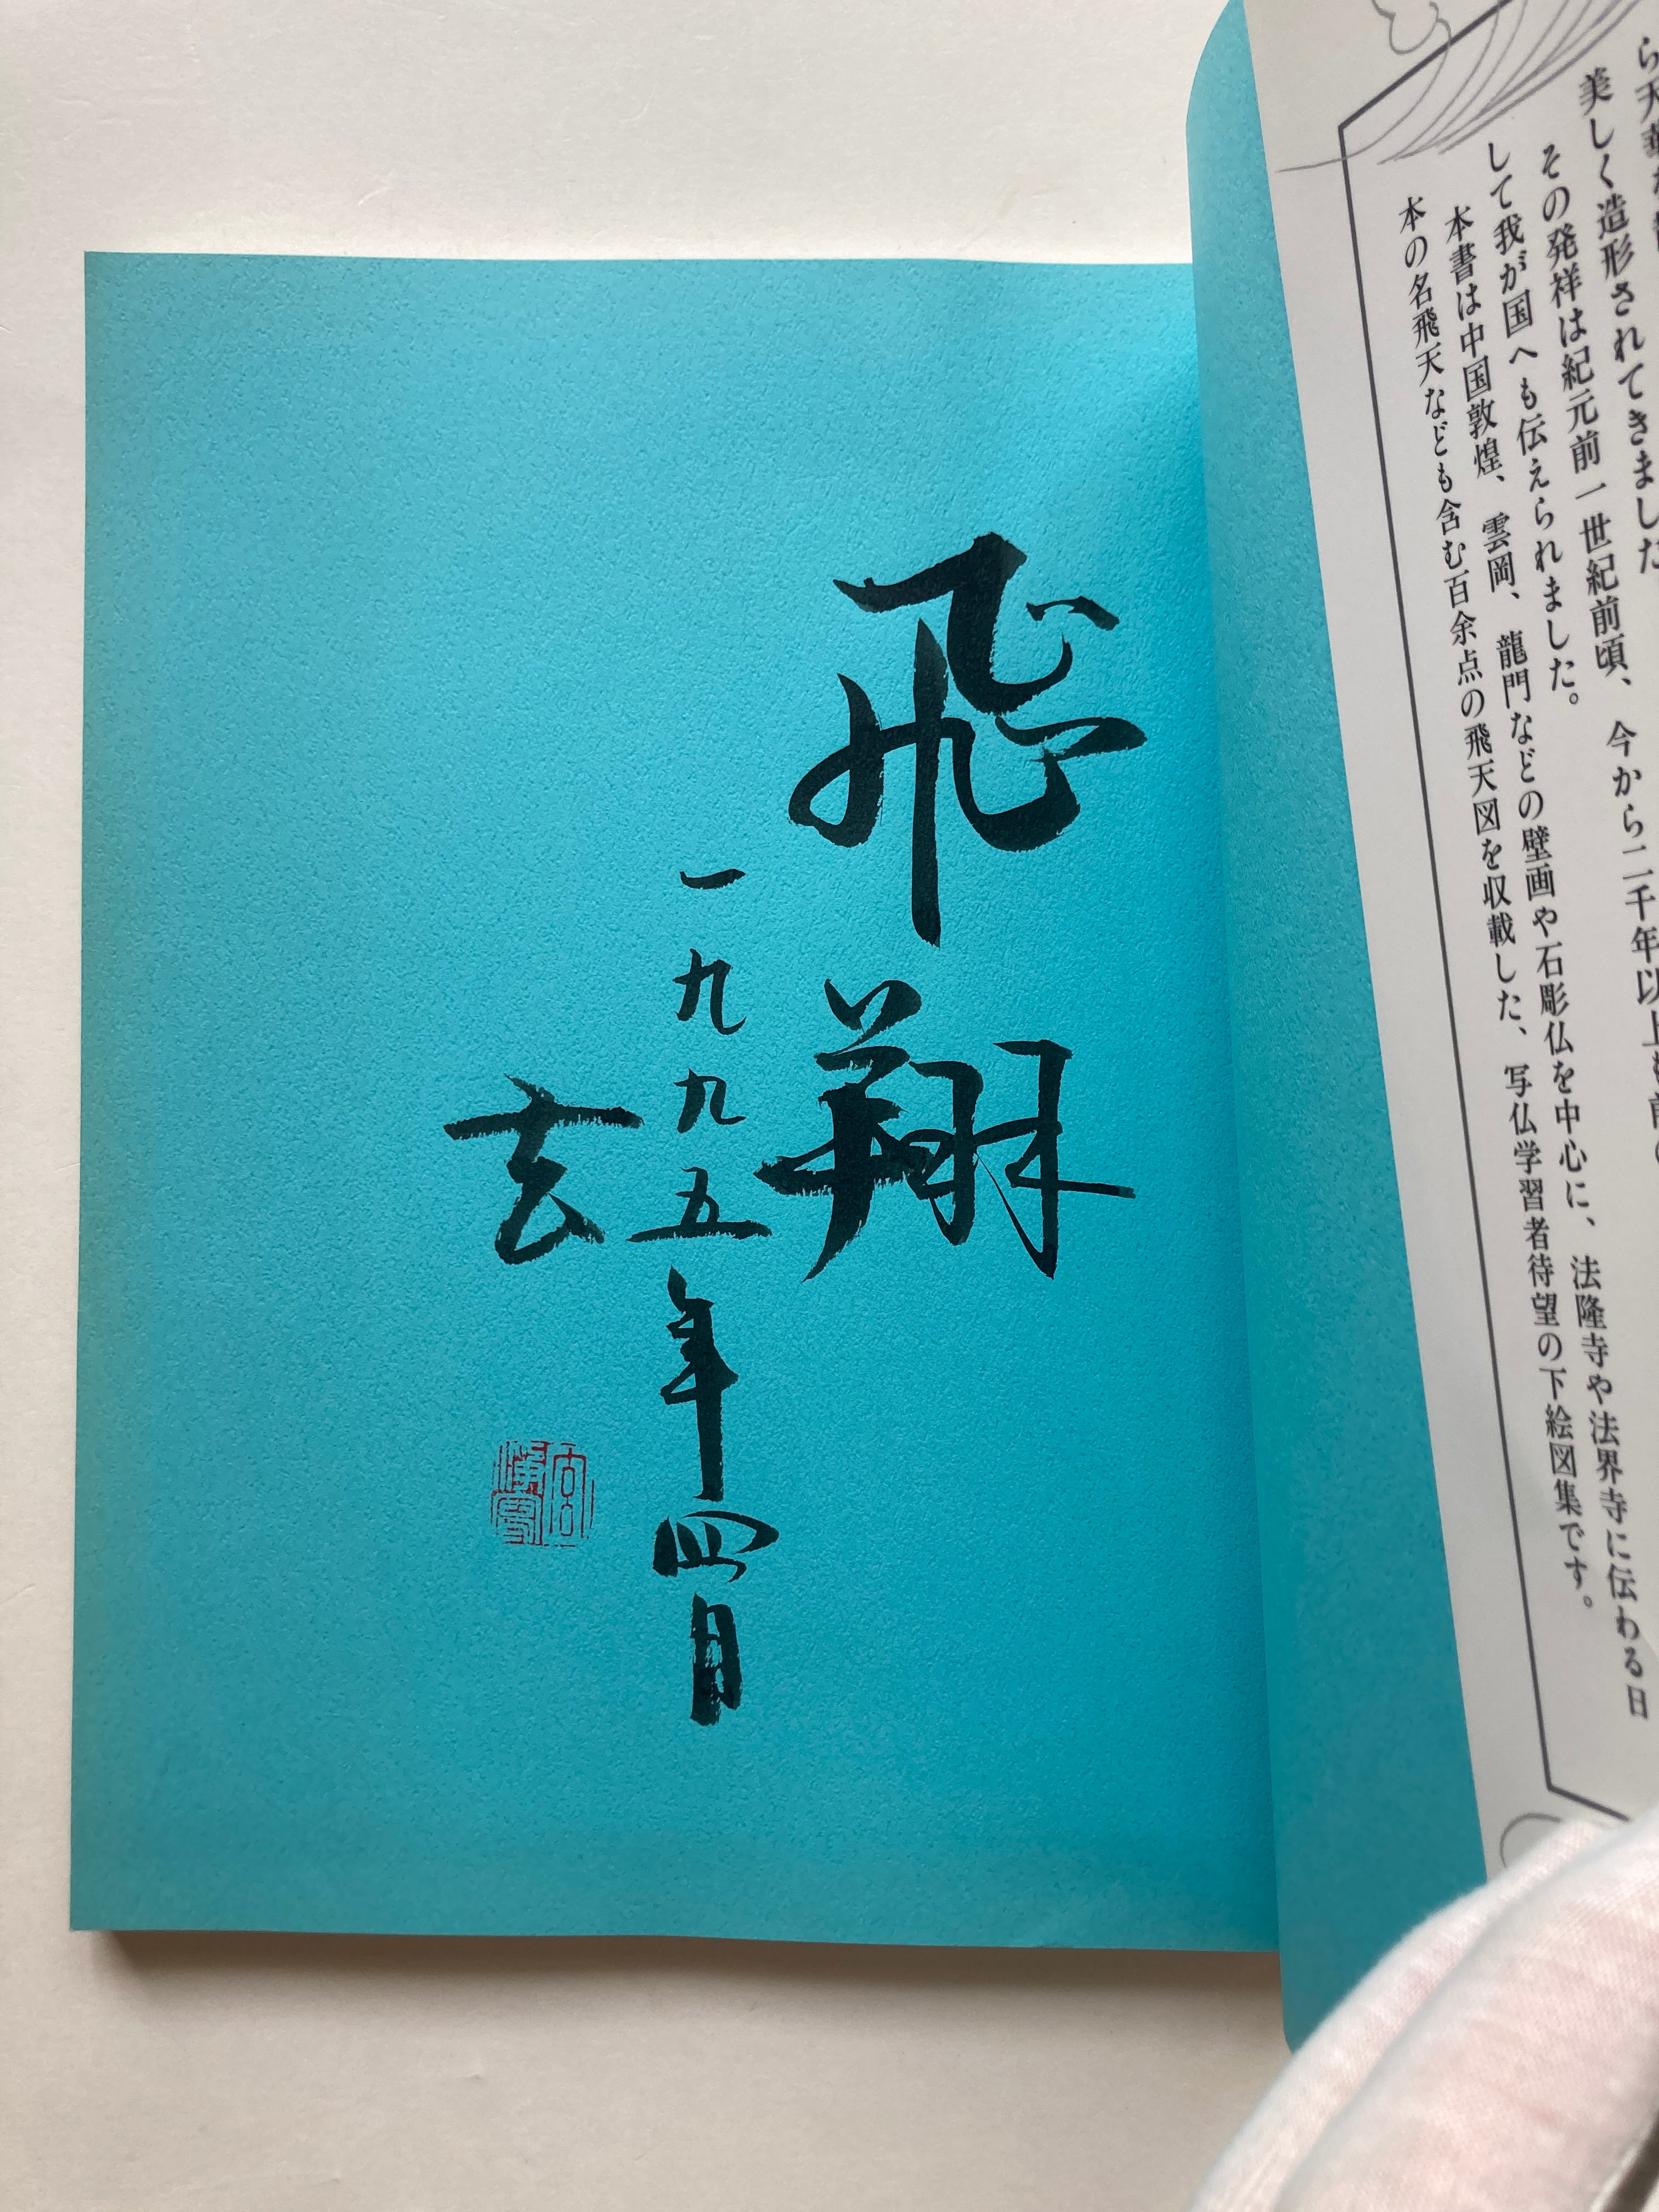 美しく造形されてきました
その発祥は紀元前一世紀前頃、今から二千年以上も前
して我が国へも伝えられました。
本書は中国敦煌、雲岡、龍門などの壁画や石彫仏を中心に、法隆寺や法界寺に伝わる日
本の名飛天なども含む百余点の飛天図を収載した、写仏学習者待望の下絵図集です。
飛翔
一九九五年四月
玄